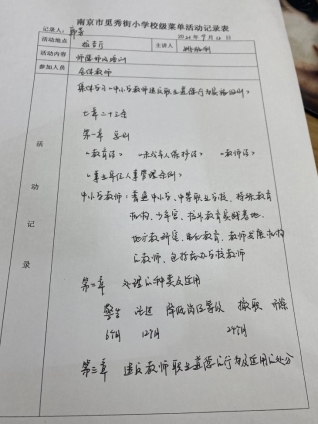 南京市觅秀街小学校级菜单活动记录表
记录人：
活动地点 主讲人
活动内容 师德师风培训
参加人员 全体教师
活动记录
集体学习《中小学教师违反职业道德行为处理细则》
七章二十三条
第一章 总则
《教育法》 《未成年人保护法》 《教师法》
《事业单位人事管理条例》
中小学教师：普通中小学、中等职业学校、特殊教育
机构、少年宫、校外教育实践基地、
地方教研室、电化教育、教师发展机构
教师，包括民办学校教师
第二章 处理的种类及适用
警告 记过 降低岗位等级 撤职 开除
6个月 12个月 24个月
第三章 违反教师职业道德行为及适用的处分